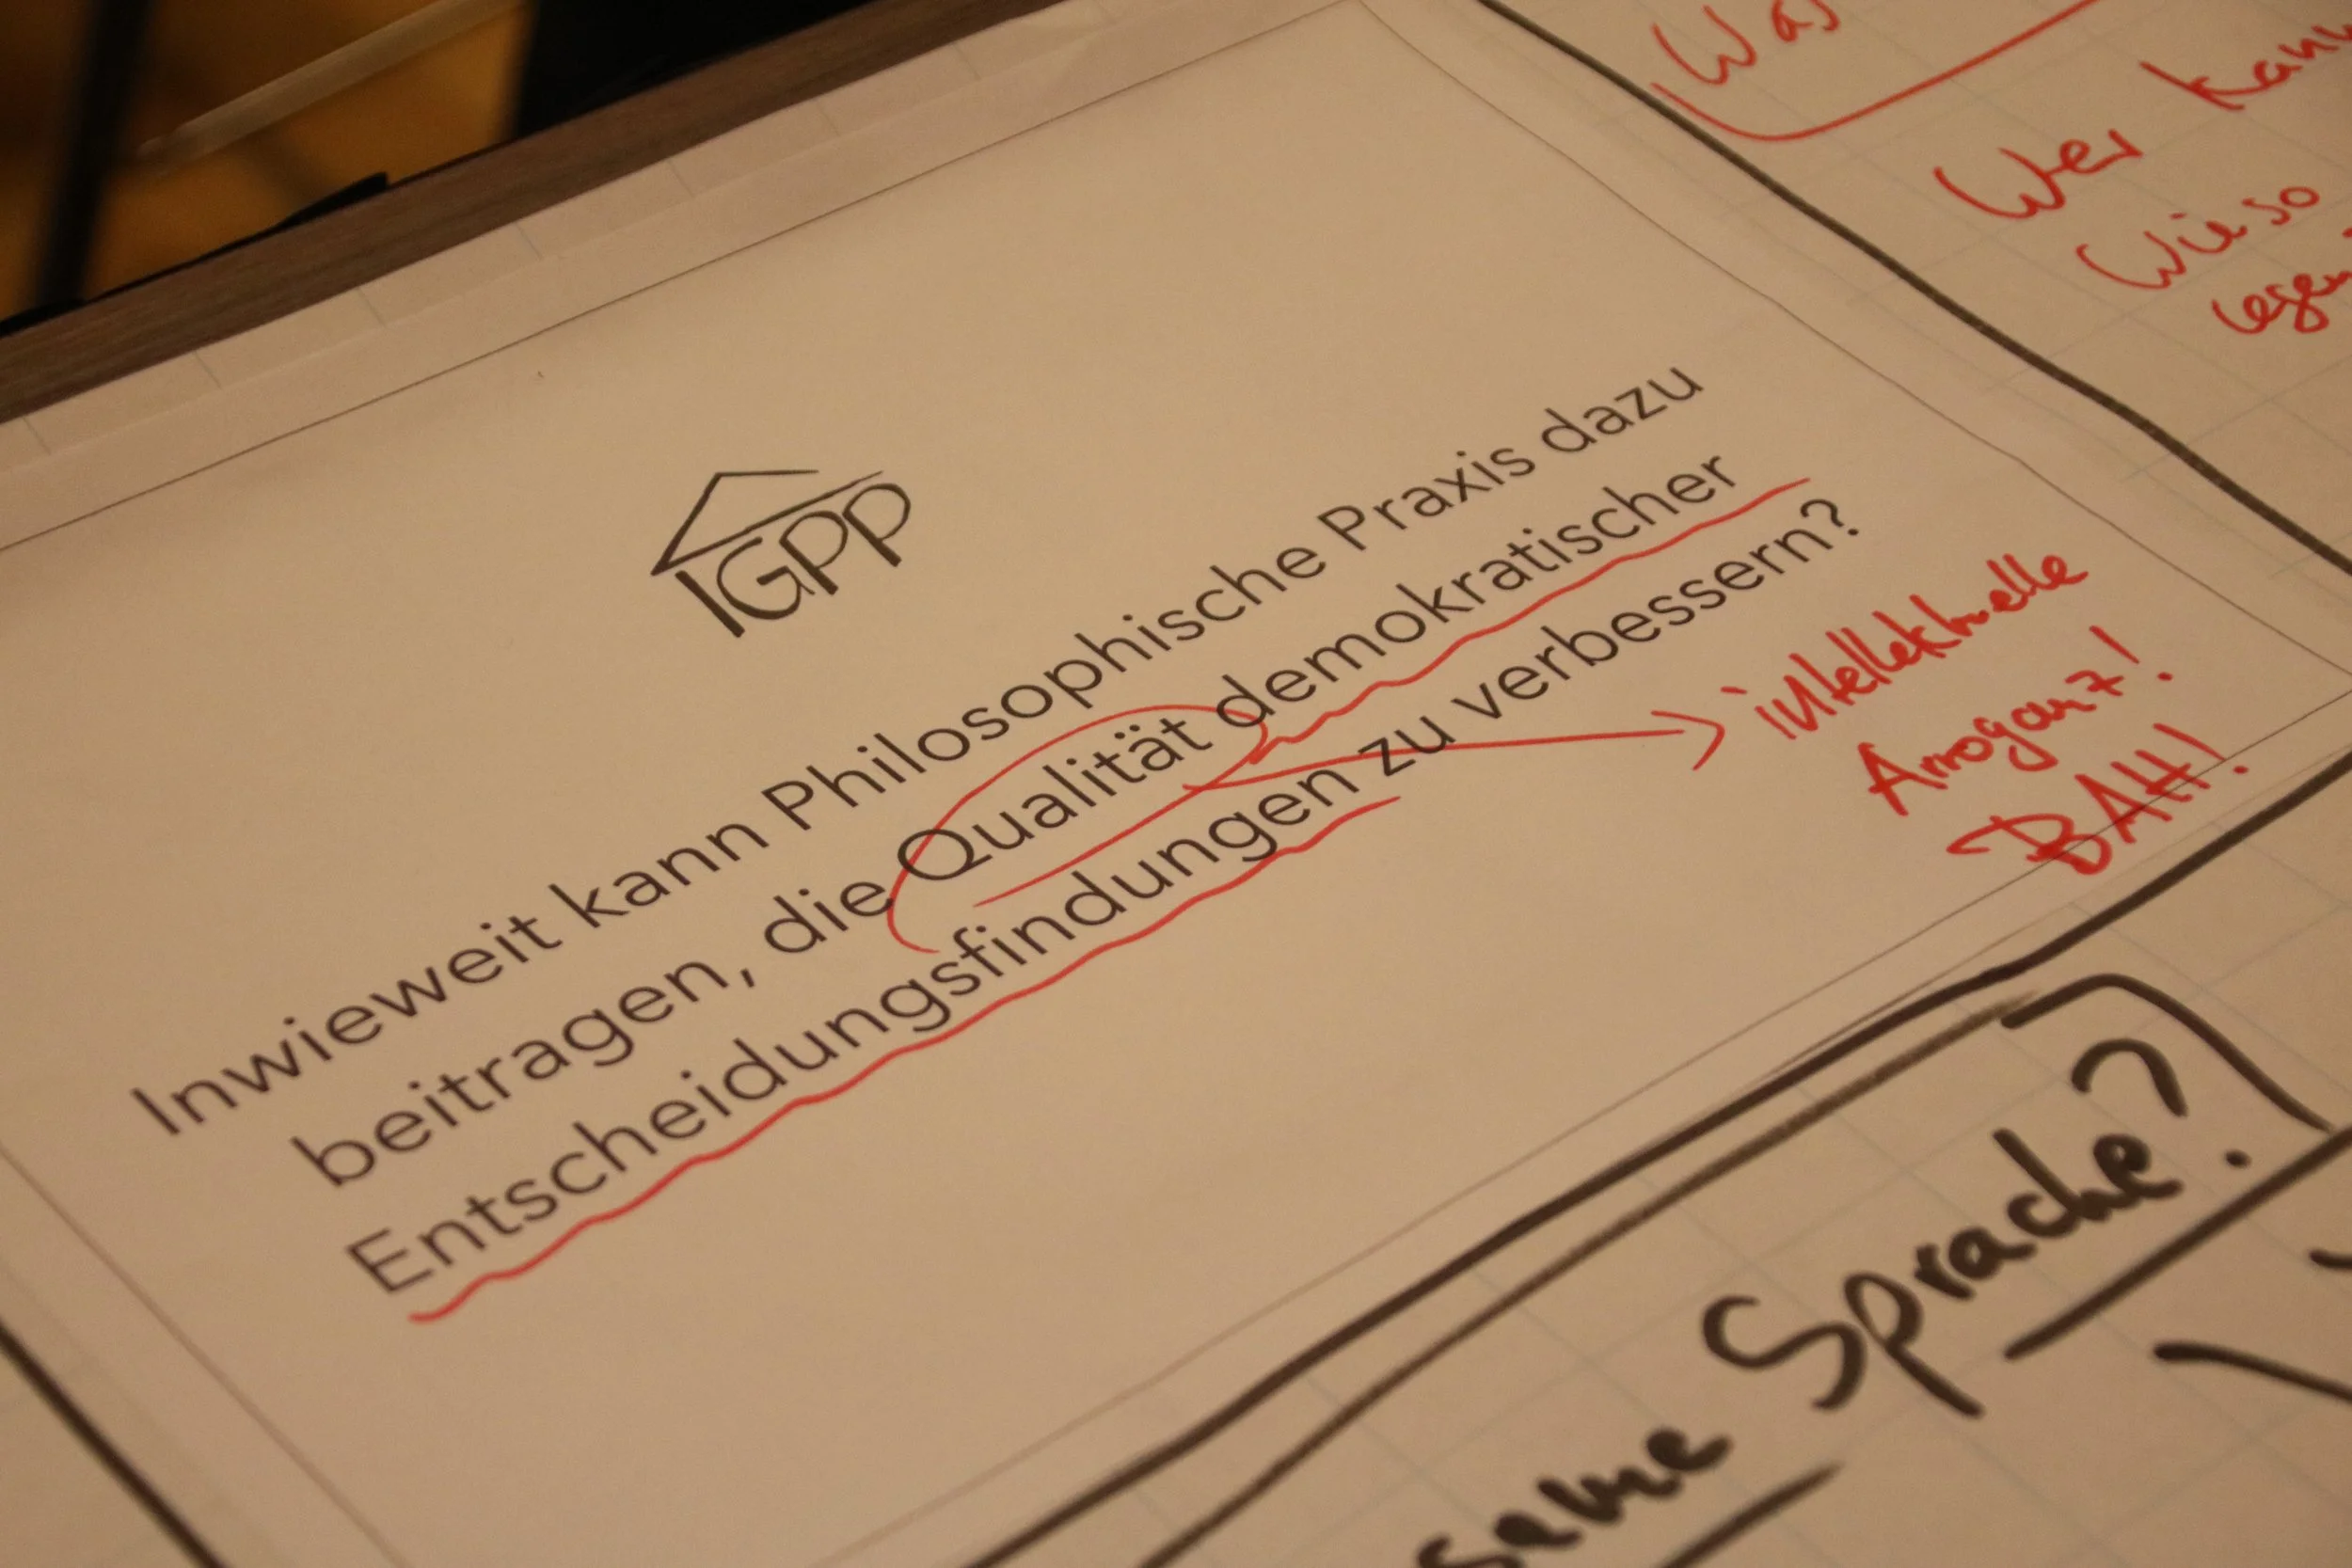 Was
Wer kann
Wieso
IGPP
Inwieweit kann Philosophische Praxis dazu
beitragen, die Qualität demokratischer
Entscheidungsfindungen zu verbessern?
intellektuelle
Arroganz!
BAH!
Sprache?